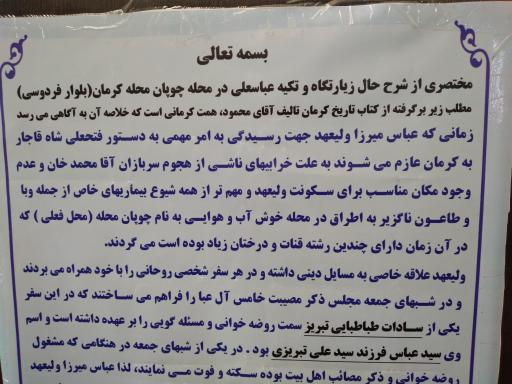 بسمه تعالی
مختصری از شرح حال زیارتگاه و تکیه عباسعلی در محله چوپان محله کرمان(بلوار فردوسی)
مطلب زیر برگرفته از کتاب تاریخ کرمان تالیف آقای محمود، همت کرمانی است که خلاصه آن به آگاهی می رسد
زمانی که عباس میرزا ولیعهد جهت رسیدگی به امر مهمی به دستور فتحعلی شاه قاجار
به کرمان عازم می شوند به علت خرابیهای ناشی از هجوم سربازان آقا محمد خان و عدم
وجود مکان مناسب برای سکونت ولیعهد و مهم تر از همه شیوع بیماریهای خاص از جمله وبا
و طاعون ناگزیر به اطراق در محله خوش آب و هوایی به نام چوپان محله (محل فعلی) که
در آن زمان دارای چندین رشته قنات و درختان زیاد بوده است می گردند.
ولیعهد علاقه خاصی به مسایل دینی داشته و در هر سفر شخصی روحانی را با خود همراه می بردند
و در شبهای جمعه مجلس ذکر مصیبت خامس آل عبا را فراهم می ساختند که در این سفر
یکی از سادات طباطبایی تبریز سمت روضه خوانی و مسئله گویی را بر عهده داشته است و اسم
وی سید عباس فرزند سید علی تبریزی بود . در یکی از شبهای جمعه در هنگامی که مشغول
روضه خوانی و ذکر مصائب اهل بیت بوده سکته و فوت می نمایند، لذا عباس میرزا ولیعهد